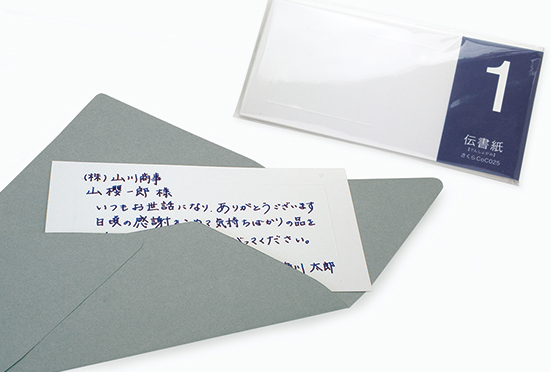 (株)山川商事
山櫻一郎様
いつもお世話になり、ありがとうございます
日頃の感謝をこめて気持ちばかりの品を
ください。
川 太郎
1
伝書紙
【でんしょがみ】
さくらCoC025